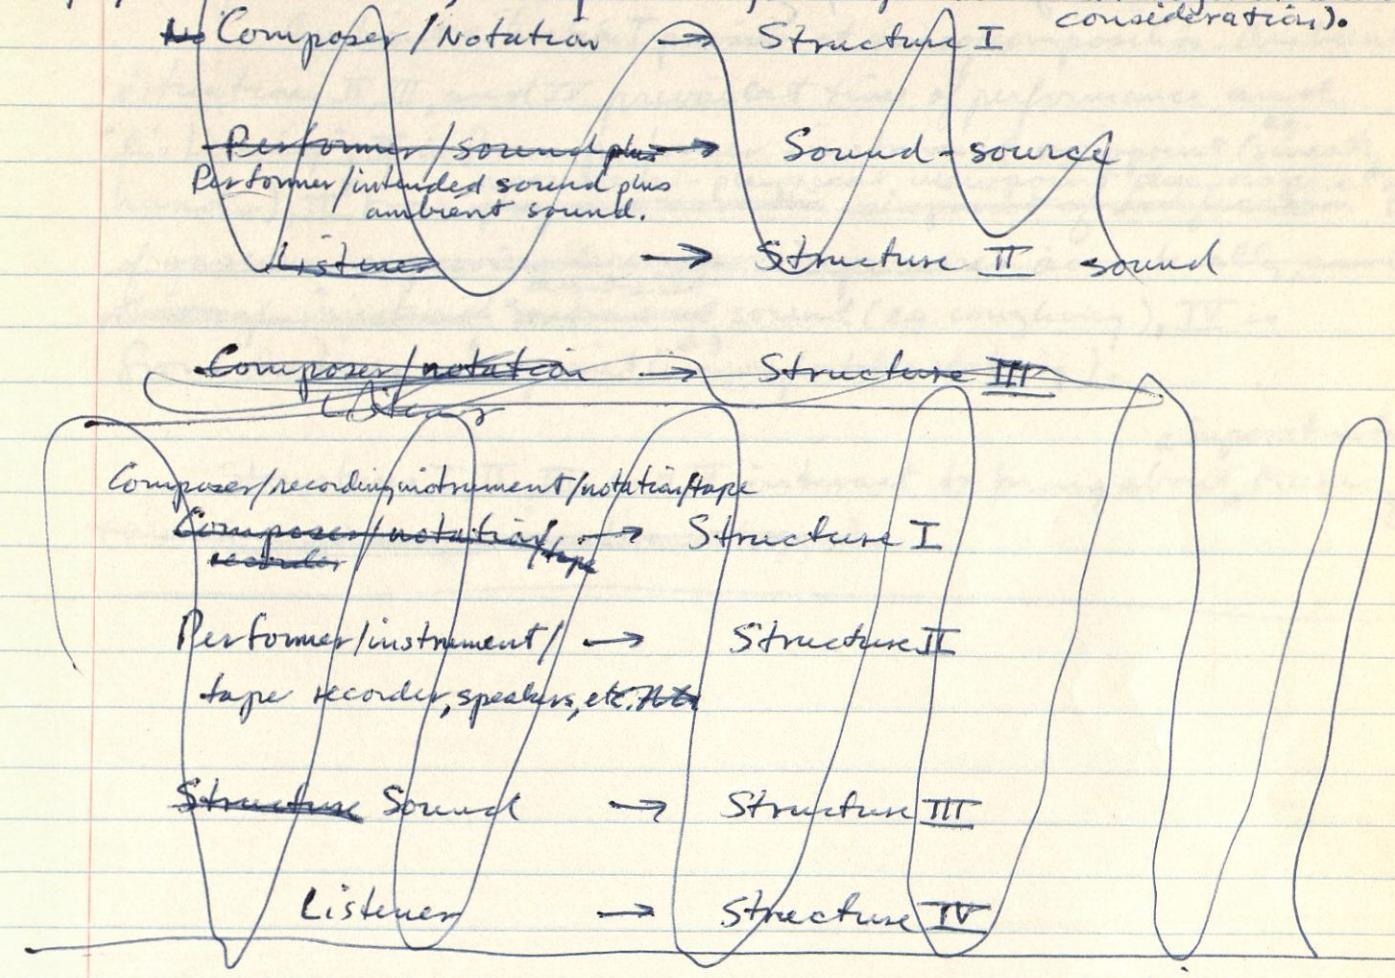 consideration).
No Composer/Notation → Structure I
Performer/sound plus → Sound-source
Performer/intended sound plus
ambient sound.
Listener → Structure II sound
Composer/notation → Structure III
Listener
Composer/recording instrument/notation/tape
Composer/notation/tape → Structure I
recorder
Performer/instrument/ → Structure II
tape recorder, speakers, etc.
Structure Sound → Structure III
Listener → Structure IV